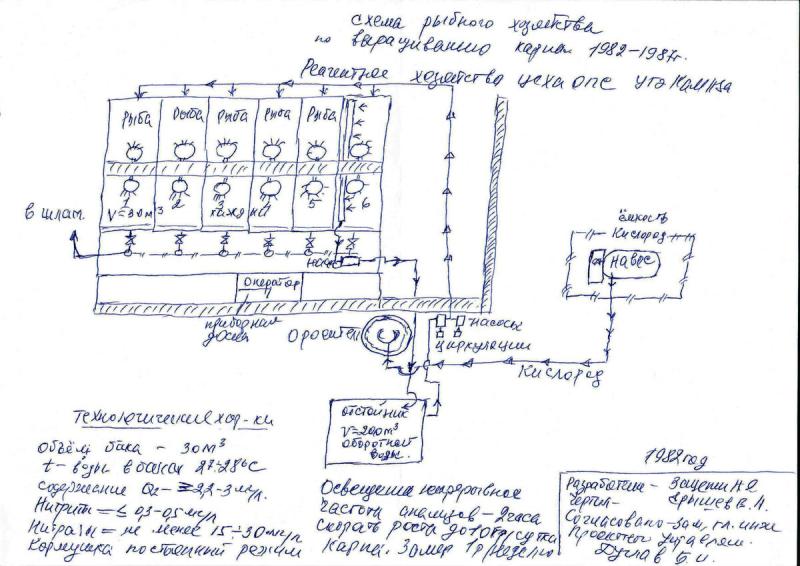 схема рыбного хозяйства
по выращиванию карпа 1982-1987г.
Реагентное хозяйства цеха опс
Рыба Рыба Рыба Рыба Рыба
1 2 3 4 5 6
V=30м³ каждый
В шлам.
насос
Оператор
приборная
доска
Ороситель
насосы
циркуляции
ёмкость
Кислород
навес
Кислород
отстойник
V=200м³
оборотной
воды.
Технологические хар-ки
Объём бака - 30м³
t- воды в баках 27-28°C
содержание O₂ - 2,2-3мг/л.
Нитриты = ≤ 0,3-0,5мг/л
Нитраты = не менее 15÷30мг/л
Кормушка постоянный режим
Освещение непрерывное
Частота анализов - 2часа
Скорость роста до 10гр/сутки
Карпа. Замер 1р/неделю
1982год
Разработал -
Чертил -
Согласовано - зам. гл. инж.
Проектом управлен.